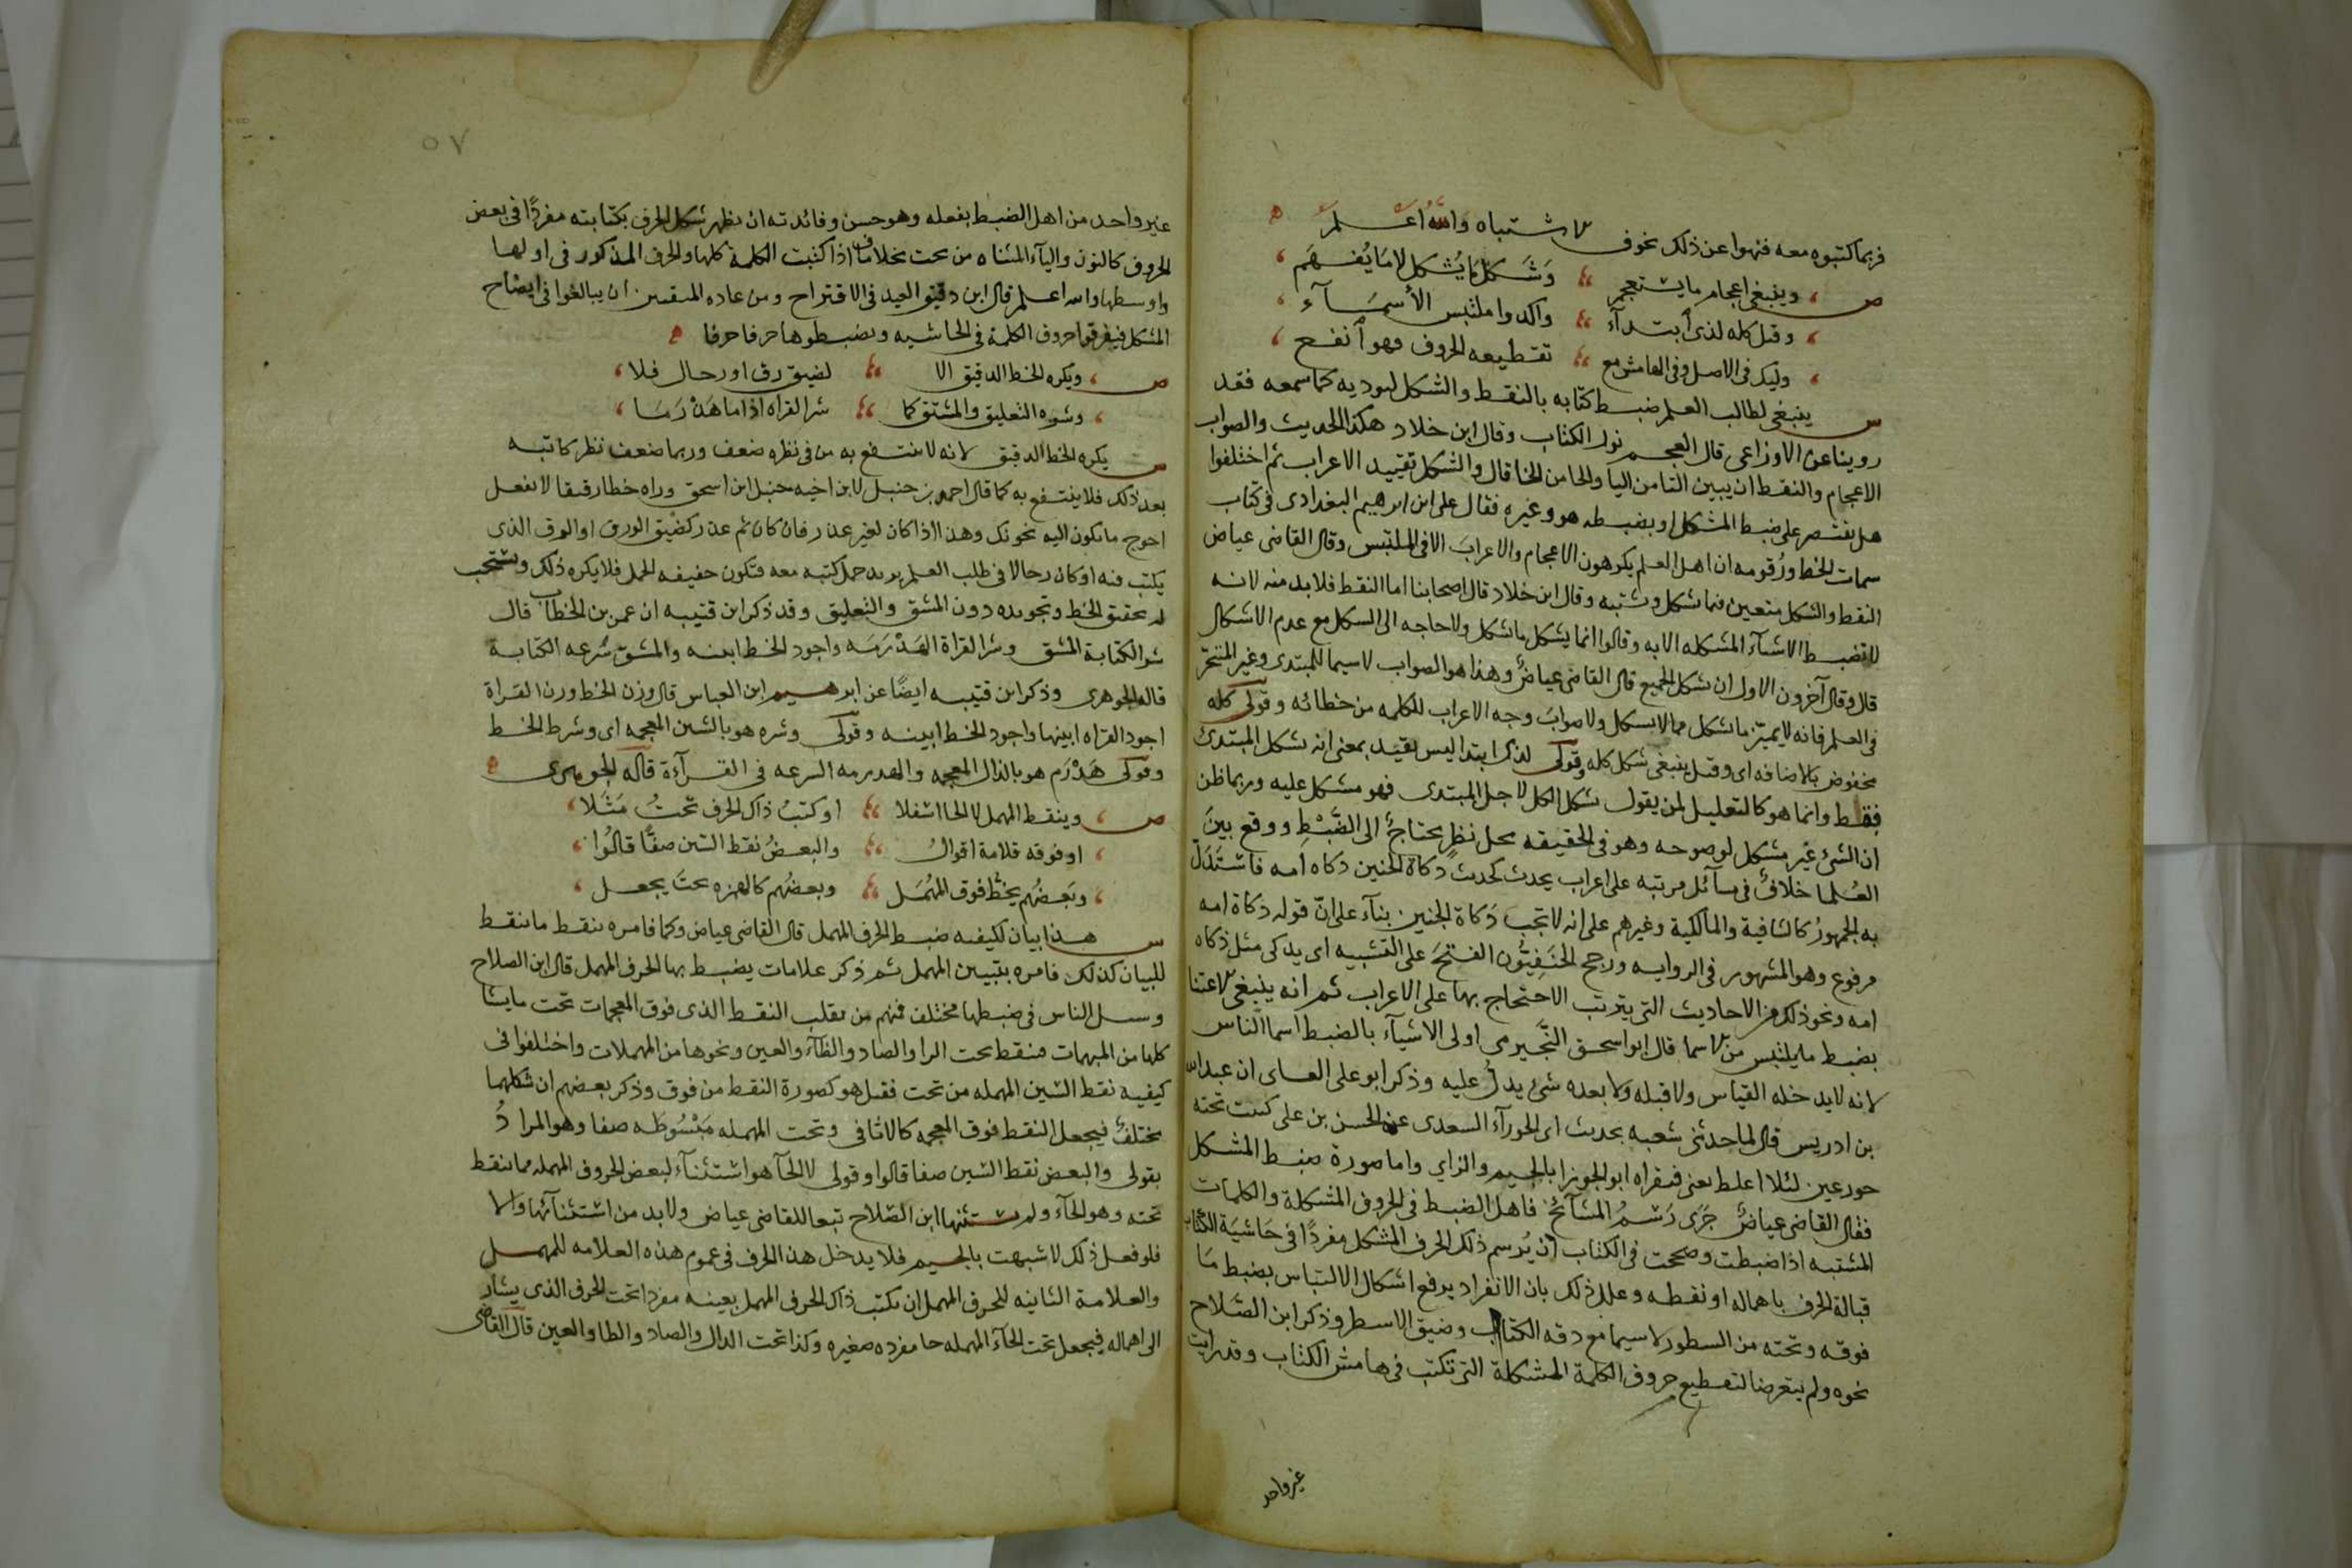 فربما كتبوه معه فنهوا عن ذلك لخوف الاشتباه والله اعلم
ص وينبغي اعجام ما يستعجم وشكل ما يشكل لا ما يفهم
وقيل كله لذى ابتدآء واكدوا ملتبس الأسمآء
وليك في الاصل وفي الهامش مع تقطيعه الحروف فهو أنفع
س ينبغي لطالب العلم ضبط كتابه بالنقط والشكل ليوديه كما سمعه فقد
روينا عن الاوزاعي قال العجم نور الكتاب وقال ابن خلاد هكذا الحديث والصواب
الاعجام والنقط ان يبين التا من اليا والحا من الخا قال والشكل تقييد الاعراب ثم اختلفوا
هل يقتصر على ضبط المشكل او يضبطه هو وغيره فقال على ابن ابرهيم البغدادى في كتاب
سمات الخط ورقومه ان اهل العلم يكرهون الاعجام والاعراب الا في الملتبس وقال القاضى عياض
النقط والشكل متعين فيما يشكل ويشتبه وقال ابن خلاد قال اصحابنا اما النقط فلا بد منه لانه
لا تضبط الاشيآء المشكله الا به وقالوا انما يشكل ما يشكل ولا حاجه الى الشكل مع عدم الاشكال
قال وقال آخرون الاولى ان يشكل الجميع قال القاضى عياض وهذا هو الصواب لا سيما للمبتدى وغير المتبحر
في العلم فانه لا يميز ما يشكل مما لا يشكل ولا صواب وجه الاعراب للكلمه من خطائه وقولى كله
مخفوض بالاضافه اى وقيل ينبغي شكل كله وقولى لذى ابتدا ليس بقيد بمعنى انه يشكل للمبتدئ
فقط وانما هو كالتعليل لمن يقول يشكل الكل لاجل المبتدى فهو مشكل عليه وربما ظن
ان الشئ غير مشكل لوضوحه وهو في الحقيقه محل نظر يحتاج الى الضبط ووقع بين
العلما خلاف في مسآئل مرتبه على اعراب الحديث كحديث ذكاة الجنين ذكاه امه فاستدل
به الجمهور كالشافية والمالكية وغيرهم على انه لا تجب ذكاة الجنين بنآء على ان قوله ذكاة امه
مرفوع وهو المشهور في الروايه ورجح الحنفيون الفتح على التشبيه اى يذكى مثل ذكاه
امه ونحو ذلك من الاحاديث التي يترتب الاحتجاج بها على الاعراب ثم انه ينبغي الاعتنا
بضبط ما يلتبس من الاسما قال ابو اسحق النجيرمى اولى الاشيآء بالضبط اسما الناس
لانه لا يدخله القياس ولا قبله ولا بعده شئ يدل عليه وذكر ابو على الغسانى ان عبدالله
بن ادريس قال لما حدثنى شعبه بحديث ابى الحورآء السعدى عن الحسن بن على كتبت تحته
حور عين لئلا اغلط يعنى فيقراه ابو الجوزا بالجيم والزاي واما صورة ضبط المشكل
فقال القاضى عياض جرى رسم المشآئخ فاهل الضبط في الحروف المشكلة والكلمات
المشتبه اذا ضبطت وصححت في الكتاب ان يرسم ذلك الحرف المشكل مفردا في حاشية الكتاب
قبالة الحرف باهماله او نقطه وعلل ذلك بان الانفراد يرفع اشكال الالتباس بضبط ما
فوقه وتحته من السطور لا سيما مع دقه الكتاب وضيق الاسطر وذكر ابن الصلاح
نحوه ولم يتعرضا لتقطيع حروف الكلمة المشكلة التى تكتب في هامش الكتاب وقد رايت
غير واحد
٥٧
غير واحد من اهل الضبط يفعله وهو حسن وفائدته ان يظهر شكل الحرف بكتابته مفردا في بعض
الحروف كالنون واليآء المثناه من تحت بخلاف ما اذا كتبت الكلمة كلها والحرف المذكور في اولها
واوسطها والله اعلم قال ابن دقيق العيد في الاقتراح ومن عاده المتقنين ان يبالغوا في ايضاح
المشكل فيفرقوا حروف الكلمة في الحاشيه ويضبطوها حرفا حرفا
ص ويكره الخط الدقيق الا لضيق رق او رحال فلا
وشره التعليق والمشق كما شر القراه اذا ما هذرما
س يكره الخط الدقيق لانه لا ينتفع به من في نظره ضعف وربما ضعف نظر كاتبه
بعد ذلك فلا ينتفع به كما قال احمد بن حنبل لابن اخيه حنبل ابن اسحق وراه خطا رقيقا لا تفعل
احوج ما تكون اليه يخونك وهذا اذا كان لغير عذر فان كان ثم عذر كضيق الورق او الرق الذى
يكتب فيه او كان رحالا في طلب العلم يريد حمل كتبه معه فتكون خفيفه الحمل فلا يكره ذلك ويستحب
له تحقيق الخط وتجويده دون المشق والتعليق وقد ذكر ابن قتيبه ان عمر بن الخطاب قال
شر الكتابة المشق وشر القراة الهذرمه واجود الخط ابينه والمشق سرعه الكتابة
قاله الجوهرى وذكر ابن قتيبه ايضا عن ابرهيم ابن العباس قال وزن الخط وزن القراة
اجود القراه ابينها واجود الخط ابينه وقولى وشره هو بالشين المعجمه اى وشرط الخط
وقولى هذرم هو بالذال المعجمه والهذرمه السرعه في القرآءة قاله الجوهرى
ص وينقط المهمل لا الحا اسفلا او كتب ذاك الحرف تحت مثلا
او فوقه قلامة اقوال والبعض نقط السين صفا قالوا
وبعضهم يخط فوق المهمل وبعضهم كالهمزه تحت يجعل
س هذا بيان لكيفيه ضبط الحرف المهمل قال القاضى عياض وكما نامره بنقط ما ينقط
للبيان كذلك نامره بتبيين المهمل ثم ذكر علامات يضبط بها الحرف المهمل قال ابن الصلاح
وسبيل الناس في ضبطها مختلف فمنهم من يقلب النقط الذى فوق المعجمات تحت ما يشا
كلها من المهملات فينقط تحت الرا والصاد والطآء والعين ونحوها من المهملات واختلفوا في
كيفيه نقط السين المهمله من تحت فقيل هو كصورة النقط من فوق وذكر بعضهم ان شكلهما
مختلف فيجعل النقط فوق المعجمه كالاثافى وتحت المهمله مبسوطه صفا وهو المراد
بقولى والبعض نقط السين صفا قالوا وقولى لا الحآ هو استثنآء لبعض الحروف المهمله مما ينقط
تحته وهو الحآء ولم يستثنها ابن الصلاح تبعا للقاضى عياض ولا بد من استثنآئها والا
فلو فعل ذلك لاشبهت بالجيم فلا يدخل هذا الحرف في عموم هذه العلامه للمهمل
والعلامة الثانيه للحرف المهمل ان يكتب ذاك الحرف المهمل بعينه مفردا تحت الحرف الذى يشار
الى اهماله فيجعل تحت الحآء المهمله حا مفرده صغيره وكذا تحت الدال والصاد والطا والعين قال القاضى